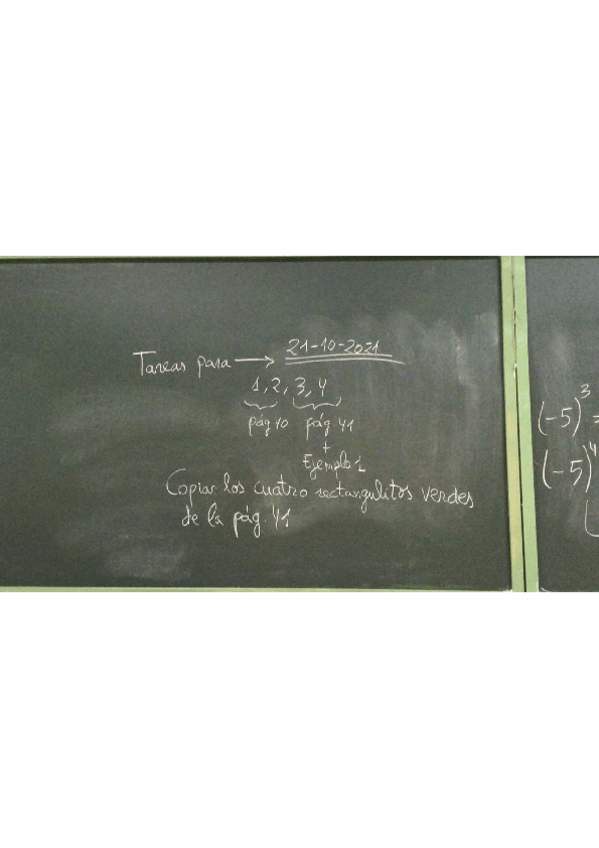 Tareas para → 21-10-2021
1, 2, 3, 4
pág 40 pág. 41
+
Ejemplo 1
Copiar los cuatro rectangulitos verdes
de la pág. 41
(-5)³ =
(-5)⁴